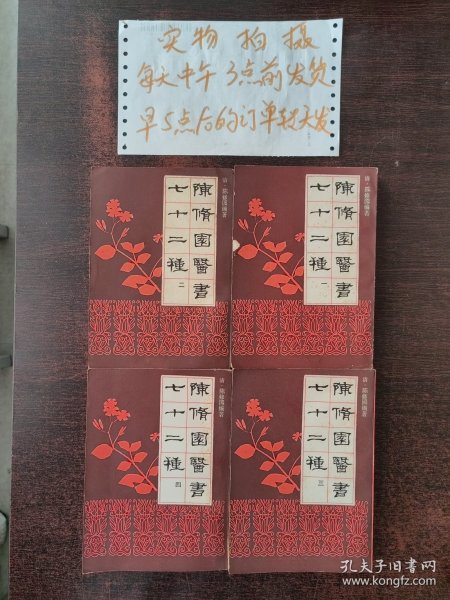 实物拍摄
每天中午3点前发货
早5点后的订单转天发
清·陈修园编著
陳脩園醫書
七十二種
二
清·陈修园编著
陳脩園醫書
七十二種
一
清·陈修园编著
陳脩園醫書
七十二種
四
清·陈修园编著
陳脩園醫書
七十二種
三
孔夫子旧书网
www.kongfz.com